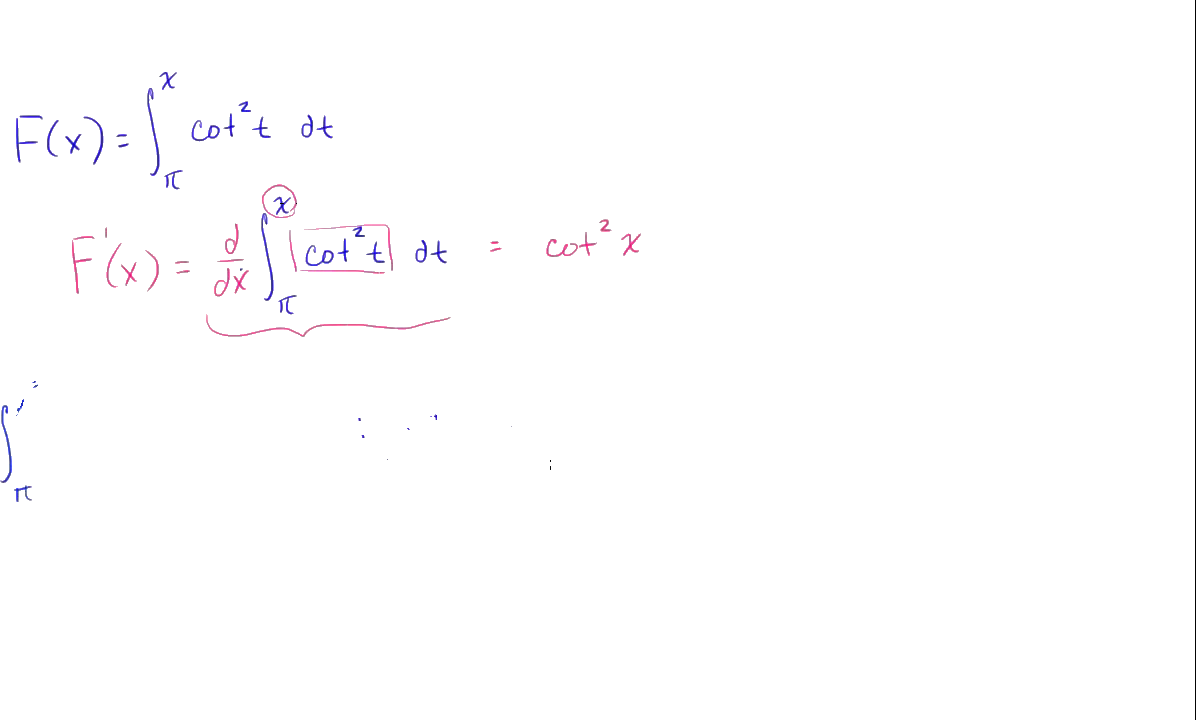 F(x) = ∫_π^x cot²t dt
F'(x) = d/dx ∫_π^x cot²t dt = cot²x
∫_π